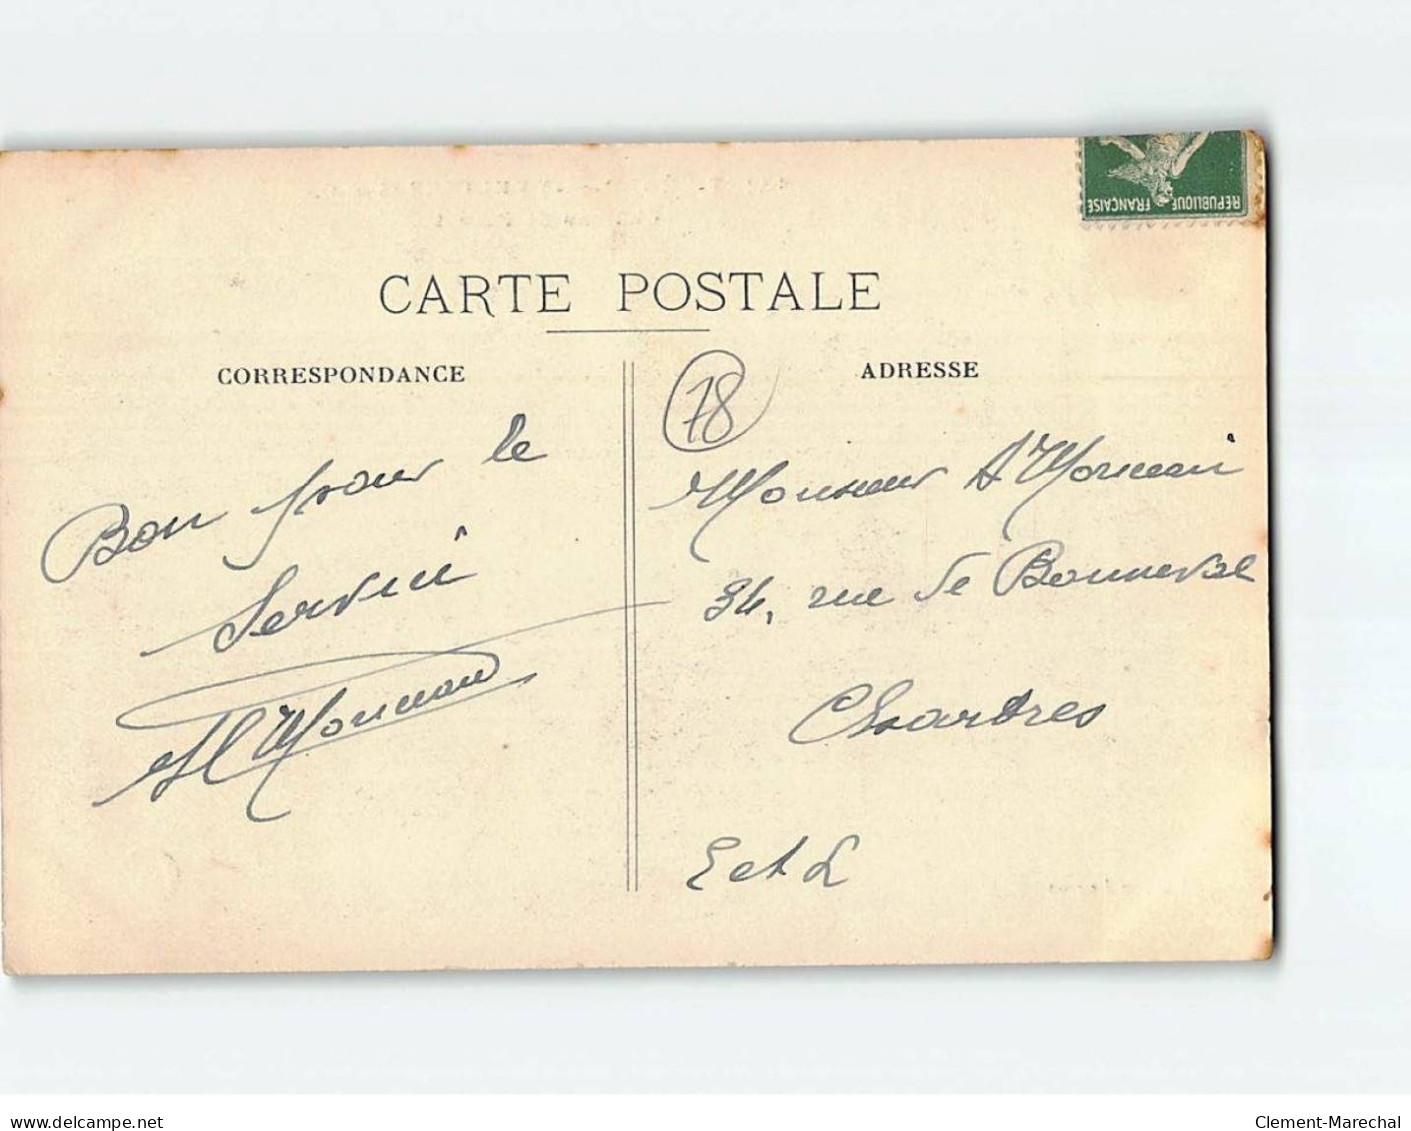 RÉPUBLIQUE FRANÇAISE
CARTE POSTALE
CORRESPONDANCE
Bon pour le
Service
ADRESSE
78
Monsieur A
34, rue de Bonneval
Chartres
E et L
delcampe.net
Clement-Marechal